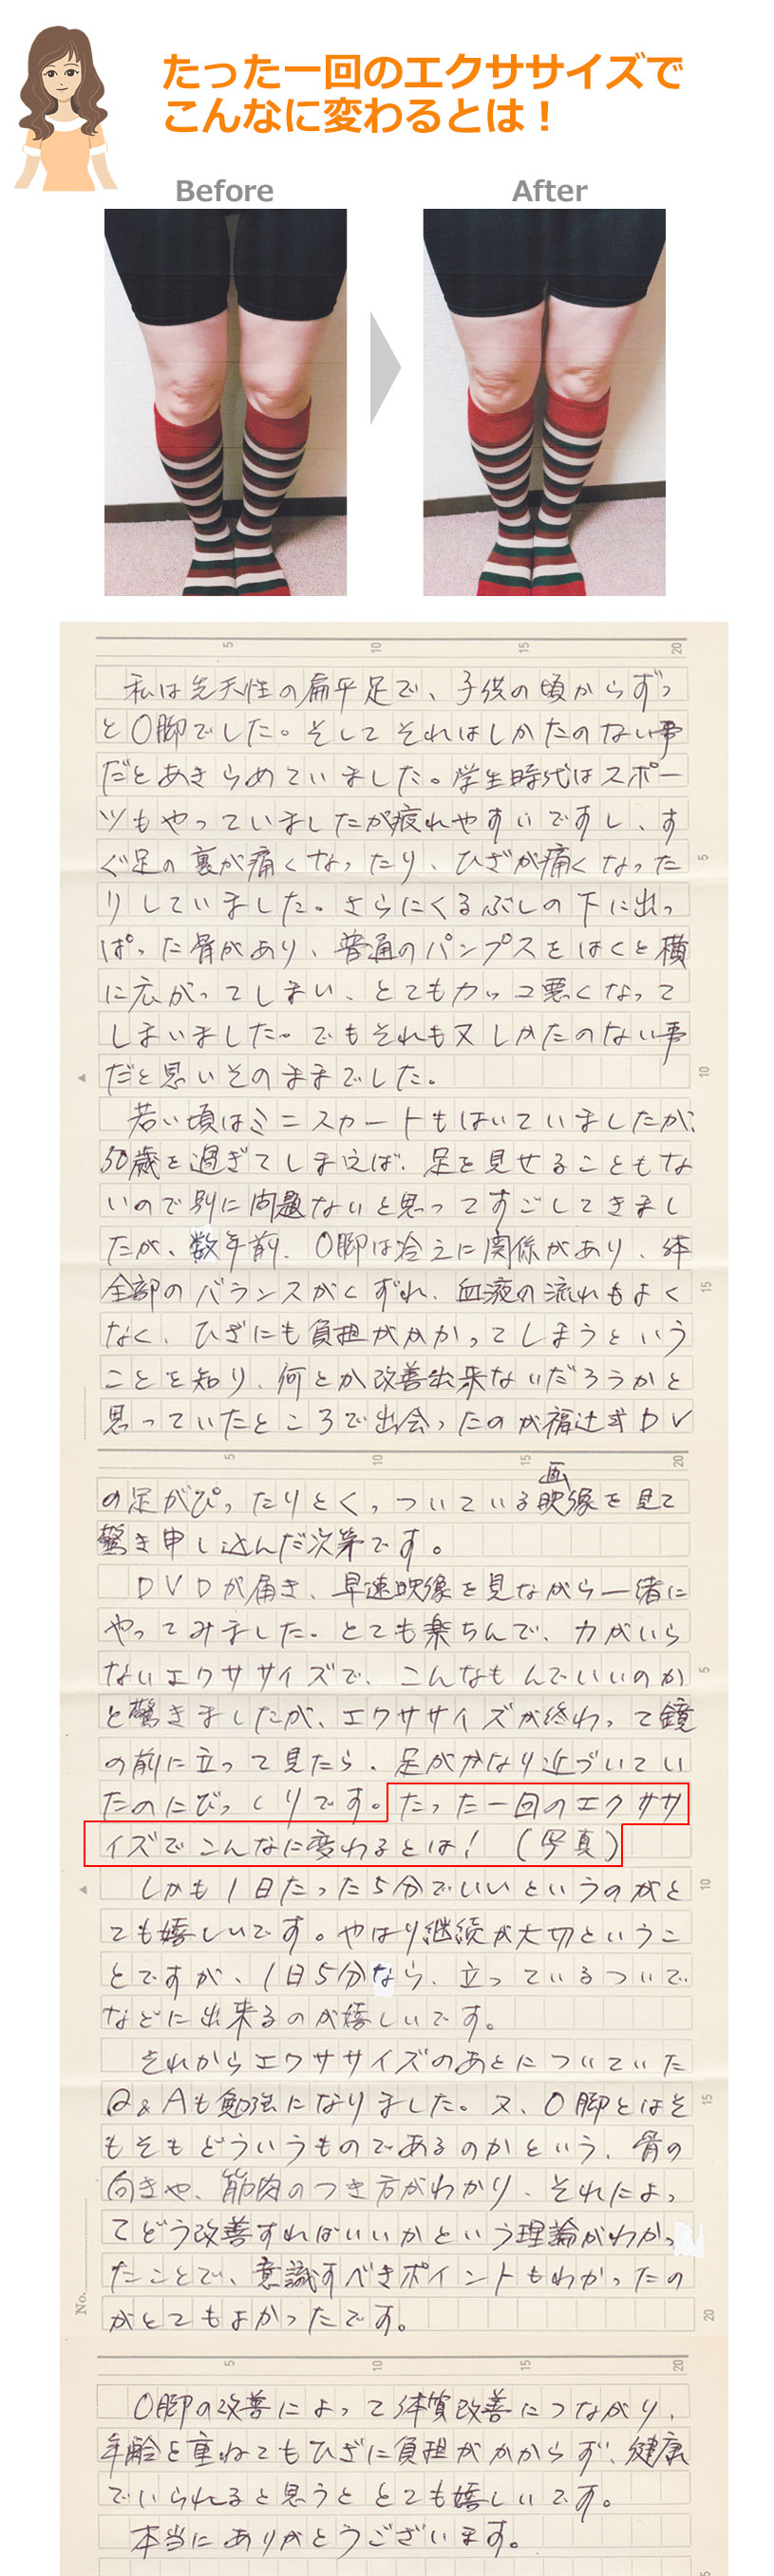 たった一回のエクササイズで
こんなに変わるとは！
Before
After
5
10
15
20
私は先天性の扁平足で、子供の頃からずっ
とO脚でした。そしてそれはしかたのない事
だとあきらめていました。学生時代はスポー
ツもやっていましたが疲れやすいですし、す
ぐ足の裏が痛くなったり、ひざが痛くなった
5
りしていました。さらにくるぶしの下に出っ
ぱった骨があり、普通のパンプスをはくと横
に広がってしまい、とてもカッコ悪くなって
しまいました。でもそれも又しかたのない事
だと思いそのままでした。
10
若い頃はミニスカートもはいていましたが、
30歳を過ぎてしまえば、足を見せることもな
いので別に問題ないと思ってすごしてきまし
たが、数年前、O脚は冷えに関係があり、体
全部のバランスがくずれ、血液の流れもよく
15
なく、ひざにも負担がかかってしまうという
ことを知り、何とか改善出来ないだろうかと
思っていたところで出会ったのが福辻式DV
5
10
15
20
画
の足がぴったりとくっついている映像を見て
驚き申し込んだ次第です。
DVDが届き、早速映像を見ながら一緒に
やってみました。とても楽ちんで、力がいら
ないエクササイズで、こんなもんでいいのか
5
と驚きましたが、エクササイズが終わって鏡
の前に立って見たら、足がかなり近づいてい
たのにびっくりです。たった一回のエクササ
イズでこんなに変わるとは！（写真）
しかも1日たった5分でいいというのがと
10
ても嬉しいです。やはり継続が大切というこ
とですが、1日5分なら、立っているついで
などに出来るのが嬉しいです。
それからエクササイズのあとについていた
Q&Aも勉強になりました。又、O脚とはそ
15
もそもどういうものであるのかという、骨の
向きや、筋肉のつき方がわかり、それによっ
てどう改善すればいいかという理論がわかっ
たことで、意識すべきポイントもわかったの
No.
がとてもよかったです。
20
5
10
15
20
O脚の改善によって体質改善につながり、
年齢を重ねてもひざに負担がかからず、健康
でいられると思うととても嬉しいです。
本当にありがとうございます。
5